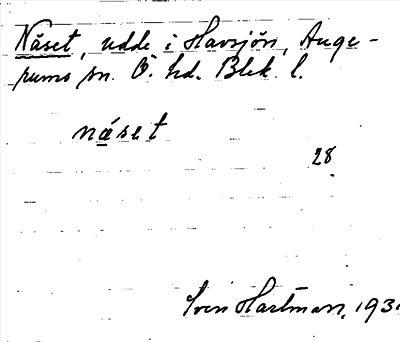 Näset, udde i Havsjön, Auge-
rums sn. Ö. hd. Blek. l.
näset
28
Sven Hartman, 193